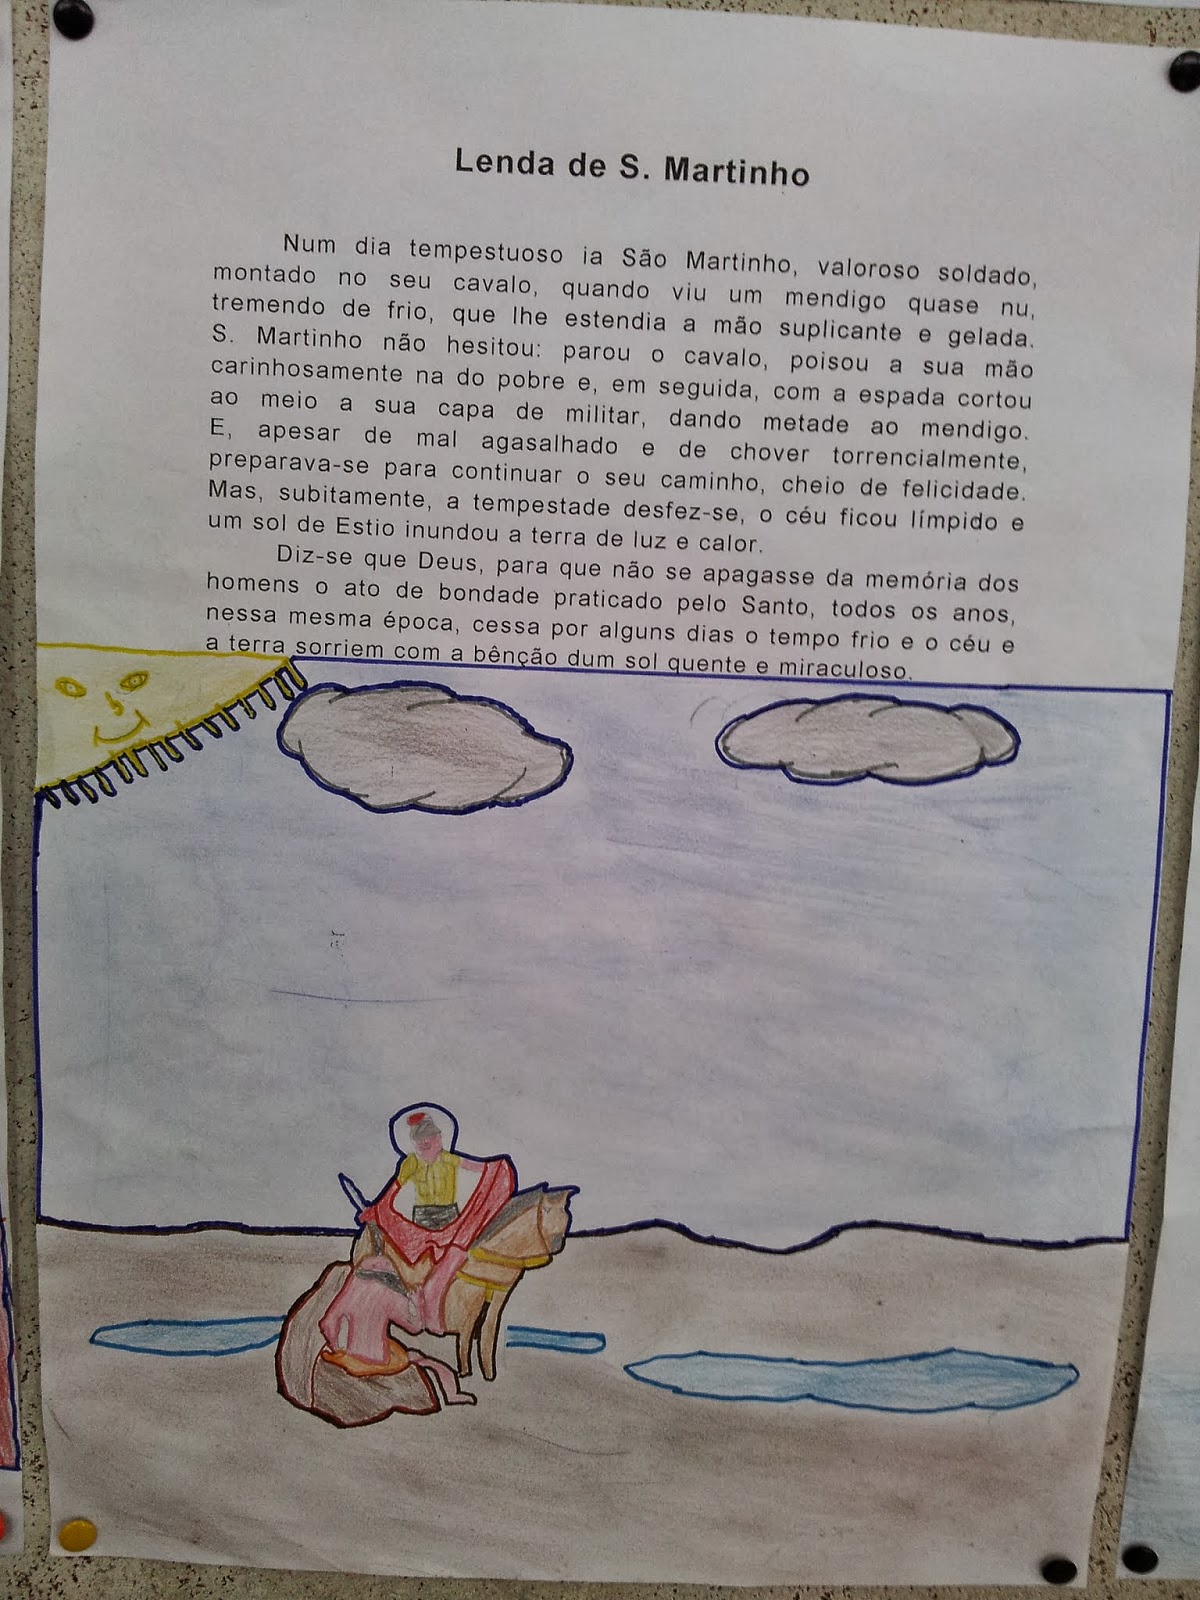 Lenda de S. Martinho
Num dia tempestuoso ia São Martinho, valoroso soldado,
montado no seu cavalo, quando viu um mendigo quase nu,
tremendo de frio, que lhe estendia a mão suplicante e gelada.
S. Martinho não hesitou: parou o cavalo, poisou a sua mão
carinhosamente na do pobre e, em seguida, com a espada cortou
ao meio a sua capa de militar, dando metade ao mendigo.
E, apesar de mal agasalhado e de chover torrencialmente,
preparava-se para continuar o seu caminho, cheio de felicidade.
Mas, subitamente, a tempestade desfez-se, o céu ficou límpido e
um sol de Estio inundou a terra de luz e calor.
Diz-se que Deus, para que não se apagasse da memória dos
homens o ato de bondade praticado pelo Santo, todos os anos,
nessa mesma época, cessa por alguns dias o tempo frio e o céu e
a terra sorriem com a bênção dum sol quente e miraculoso.